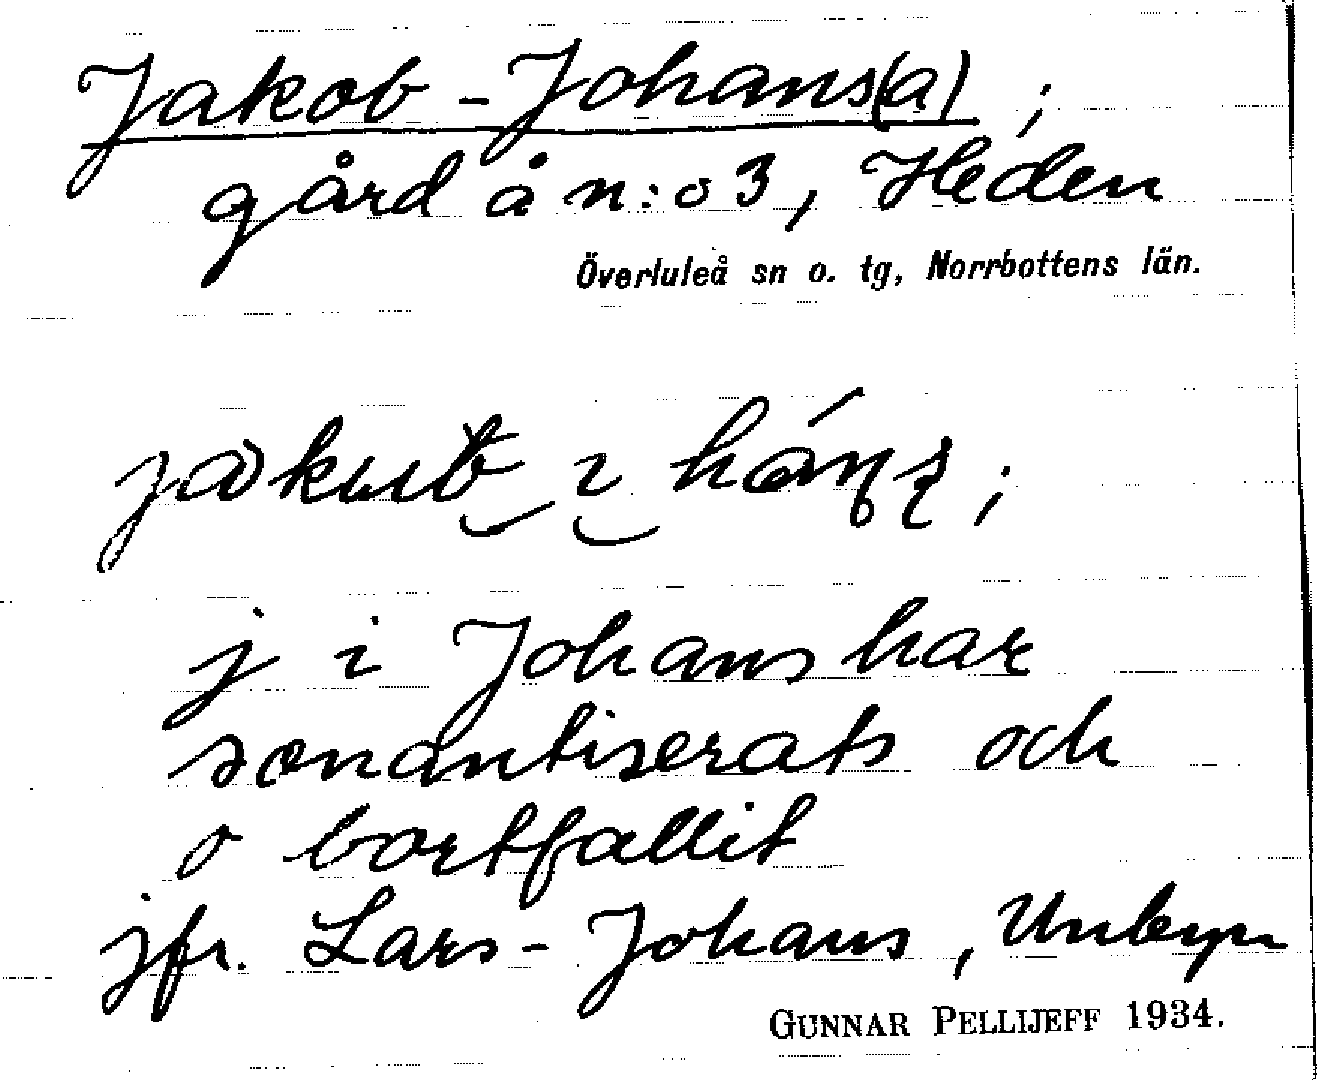 Jakob-Johans(a) ;
gård å n:o 3, Heden
Överluleå sn o. tg, Norrbottens län.
j i Johans har
sonantiserats och
o bortfallit
jfr. Lars-Johans, Unbyn
GUNNAR PELLIJEFF 1934.